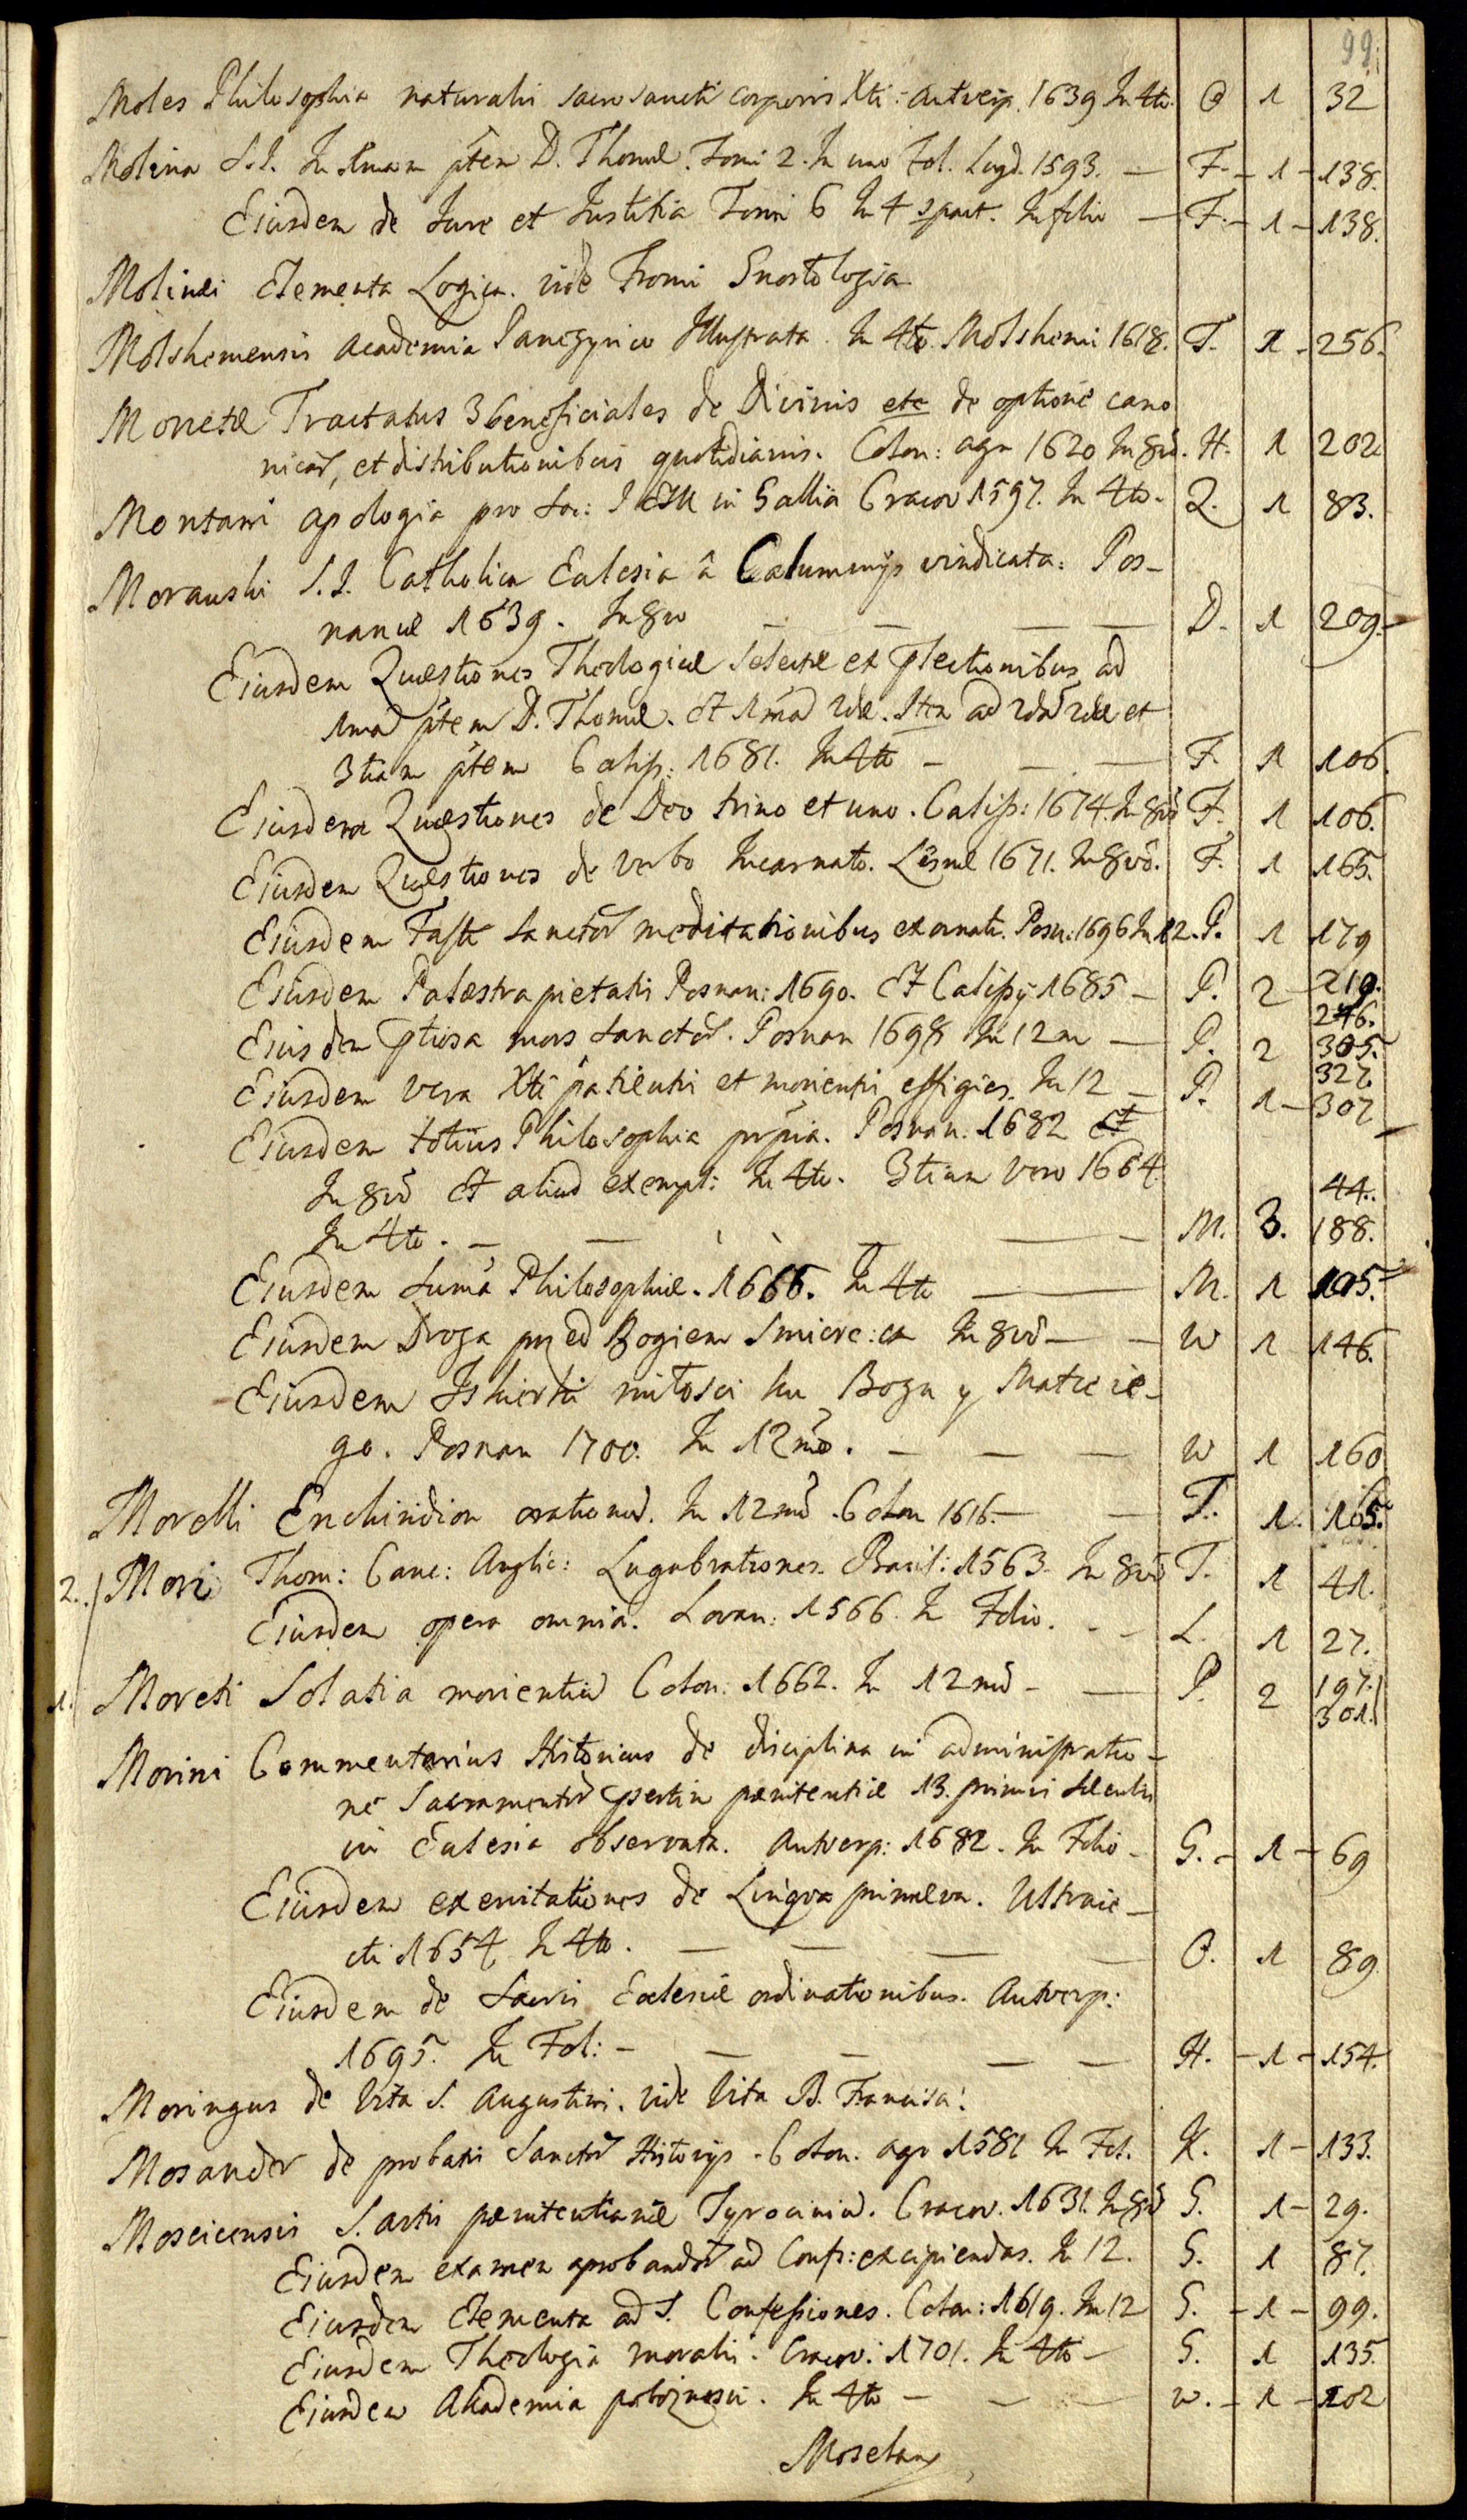 99.
Moles Philosophia naturalis sacrosancti corporis Xti. Antverp. 1639 In 4to. O 1 32
Molina S.I. In 1mam ptem D. Thomæ. Tomi 2. In uno Fol. Lugd. 1593. — F. – 1 – 138.
Eiusdem de Jure et Justitia Tomi 6 In 4 part. In folio — F. – 1 – 138.
Molinæi Elementa Logica. vide Fromi Gnostologia
Molshemensis Academia Panegyrico Illustrata. In 4to. Molshemii 1618. T. 1 – 256.
Monetæ Tractatus 3 beneficiales de Divinis etc de optione cano
nicar, et distributionibus quotidianis. Colon: agr 1620 In 8vo. H. 1 202
Montani Apologia pro Soc: IESU in Gallia Cracov 1597. In 4to. Q. 1 83.
Morawski S.I. Catholica Eclesia â Calumnijs vindicata: Pos–
naniæ 1639. In 8vo — — — — D. 1 209.
Eiusdem Quæstiones Theologicæ selectæ ex plectionibus ad
1mã ptem D. Thomæ. Et 1mã 2dæ. Item ad 2dã 2dæ et
3tiam ptem Caliss: 1681. In 4to – — — F. 1 106.
Eiusdem Quæstiones de Deo trino et uno. Caliss: 1674. In 8vo F. 1 106.
Eiusdem Quæstiones de Verbo Incarnato. Lesnæ 1671. In 8vo. F. 1 165.
Eiusdem Fasti Sanctor meditationibus exornati. Posn: 1696 In 12. P. 1 179
Eiusdem Palæstra pietatis Posnan: 1690. Et Calissij 1685 – P. 2 – 219.
246.
Eiusdem ptiosa mors Sanctor. Posnan 1698 In 12m — P. 2 305.
327.
Eiusdem vera Xti patientis et morientis effigies. In 12 – P. 1 – 307
Eiusdem totius Philosophia prpia. Posnan: 1682 Et
In 8vo Et aliud exempl: In 4to. 3tium vero 1664 44.
In 4to. – — — — M. 3. 188.
Eiusdem Suma Philosophiæ. 1666. In 4to — M. 1 105.
Eiusdem Droga przed Bogiem Smierc: ca In 8vo — — W 1 146.
Eiusdem Iskierki miłosci ku Bogu y Matce ie–
go. Posnan 1700. In 12mo. — — — W 1 160
Morelli Enchiridion orationũ. In 12mo. Colon 1616. — — T. 1. 165.
2. Mori Thom: Canc: Anglic: Lugubrationes. Basil: 1563. In 8vo T. 1 41.
Eiusdem opera omnia. Lovan: 1566. In Folio. – – L. 1 27.
1. Moreti Solatia morientiũ Colon: 1662. In 12mo – — P. 2 197.
301.
Morini Commentarius Historicus de disciplina in administratio–
ne Sacramentor psertim pœnitentiæ 13. primis sæculis
in Eclesia observata. Antverp: 1682. In Folio – G. – 1 – 69
Eiusdem exercitationes de Lingva primæva. Ultraie–
cti 1654 In 4to. — — — — O. 1 89.
Eiusdem de Sacris Eclesiæ ordinationibus. Antverp:
1695. In Fol: – — — — — H. – 1 – 154.
Moringus de Vita S. Augustini. vide Vita B. Francisci
Mosander de probatis Sanctor Historijs. Colon. agr 1581 In Fol. K. 1 – 133.
Moscicensis S. artis pænitentiariæ Tyrociniũ. Cracov. 1631. In 8vo G. 1 – 29.
Eiusdem examen aprobandor ad Confs: excipiendas. In 12. G. 1 87.
Eiusdem Elementa ad S. Confessiones. Colon: 1619. In 12 G. – 1 – 99.
Eiusdem Theologia moralis. Cracov: 1701. In 4to – G. 1 135.
Eiusdem Akademia pobożnosci. In 4to – — — W. – 1 – 102
Moselan